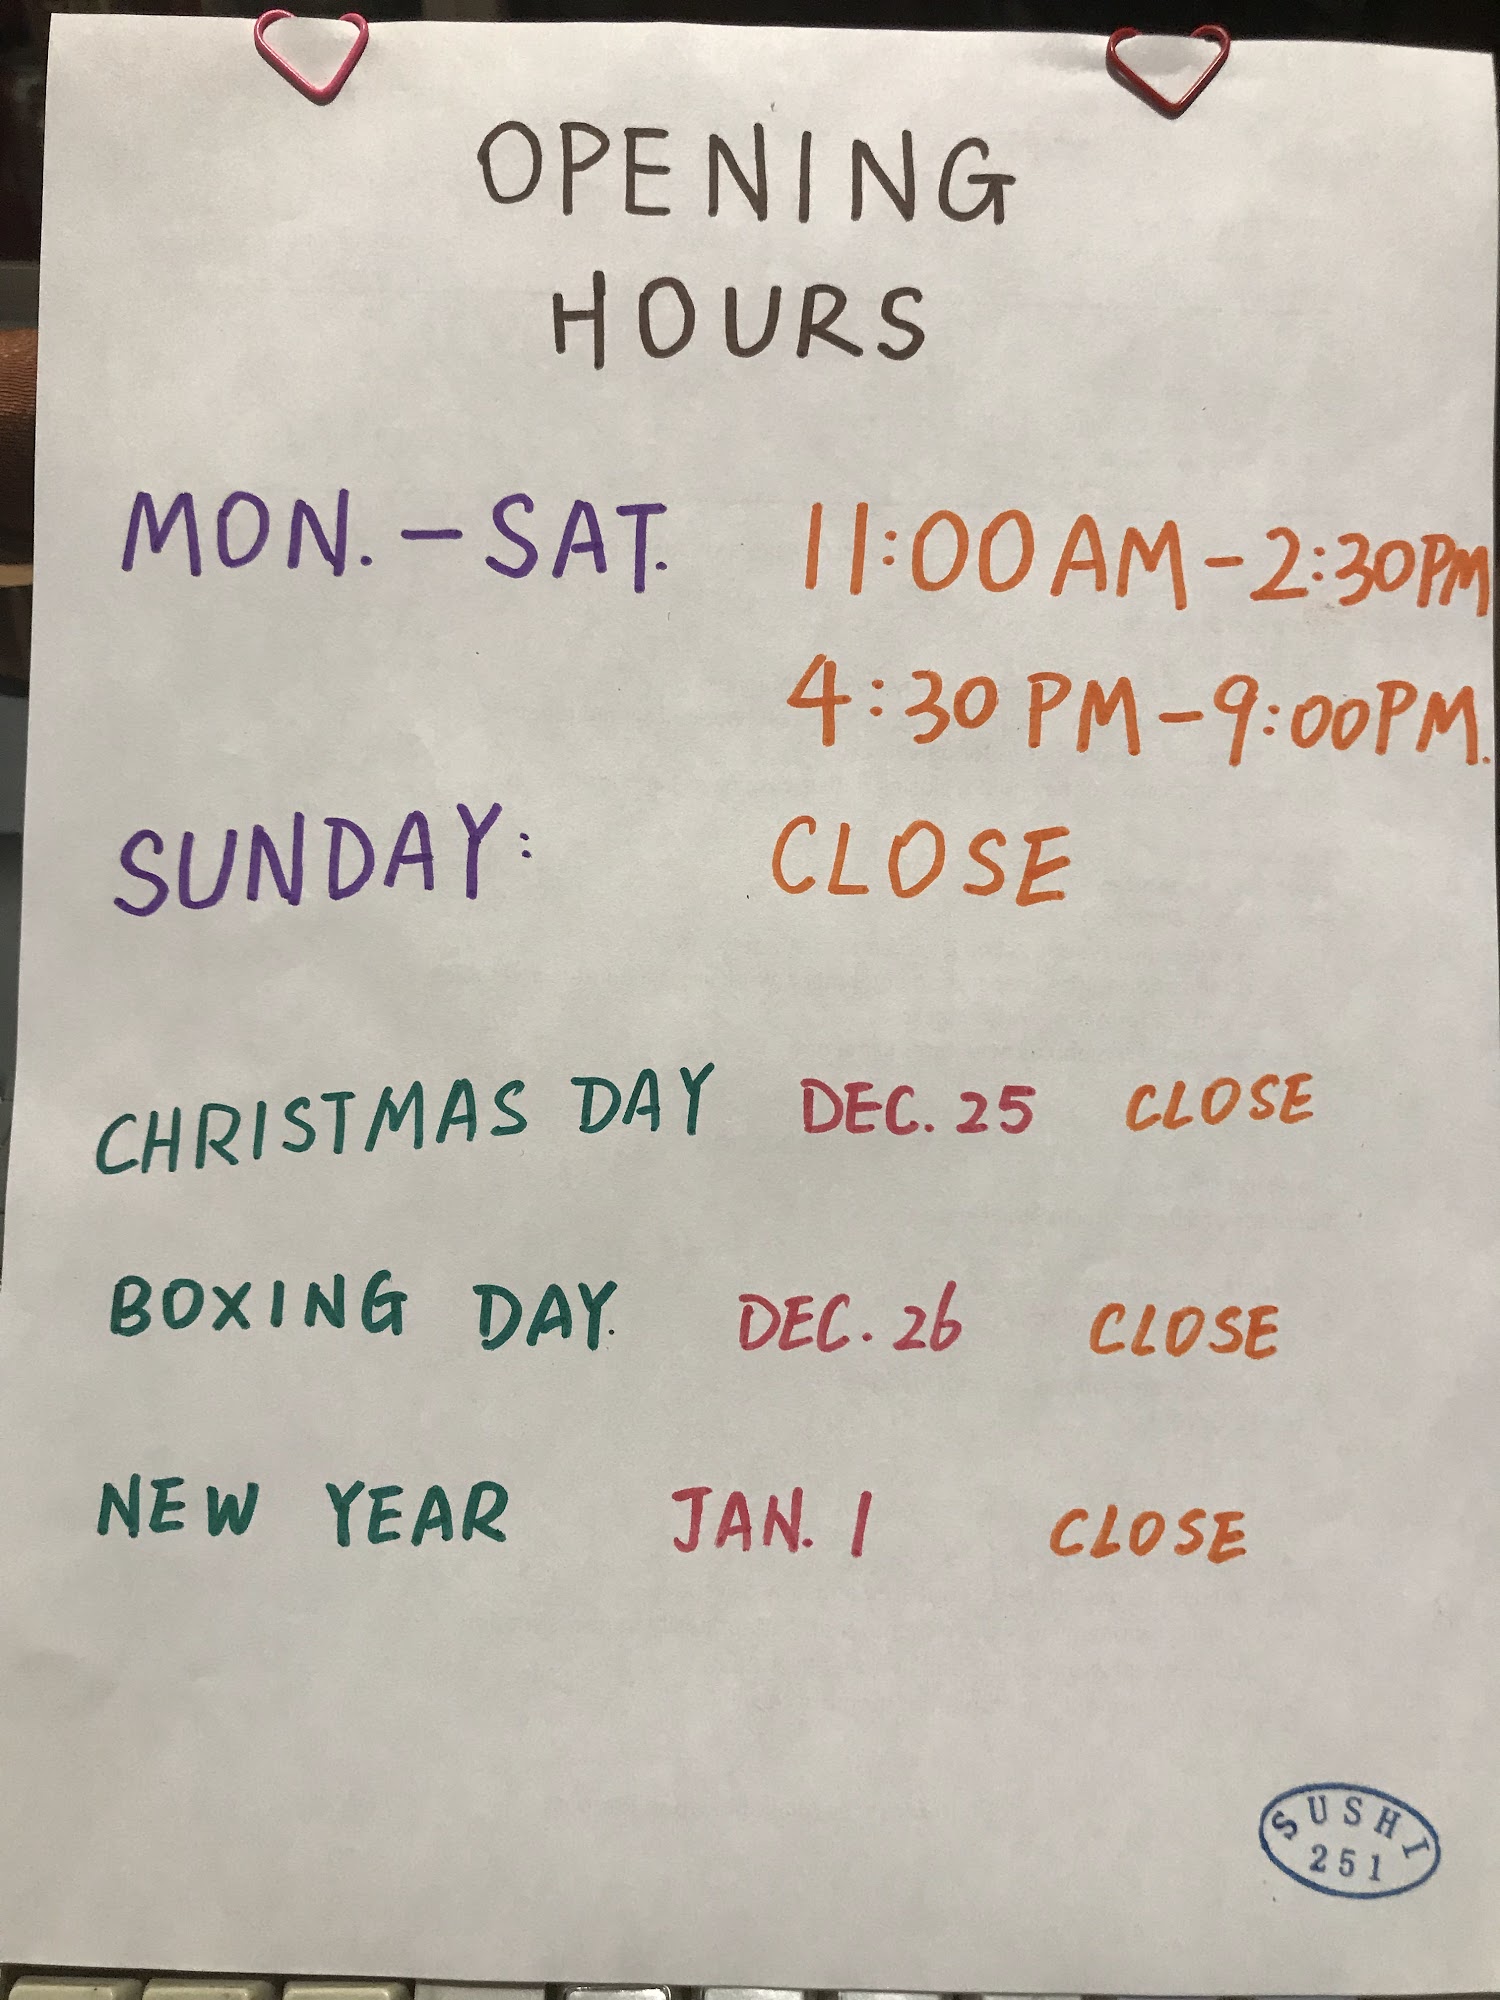 OPENING
HOURS
MON. - SAT. 11:00 AM - 2:30PM
4:30 PM - 9:00PM.
SUNDAY: CLOSE
CHRISTMAS DAY DEC. 25 CLOSE
BOXING DAY. DEC. 26 CLOSE
NEW YEAR JAN. 1 CLOSE
SUSHI
251